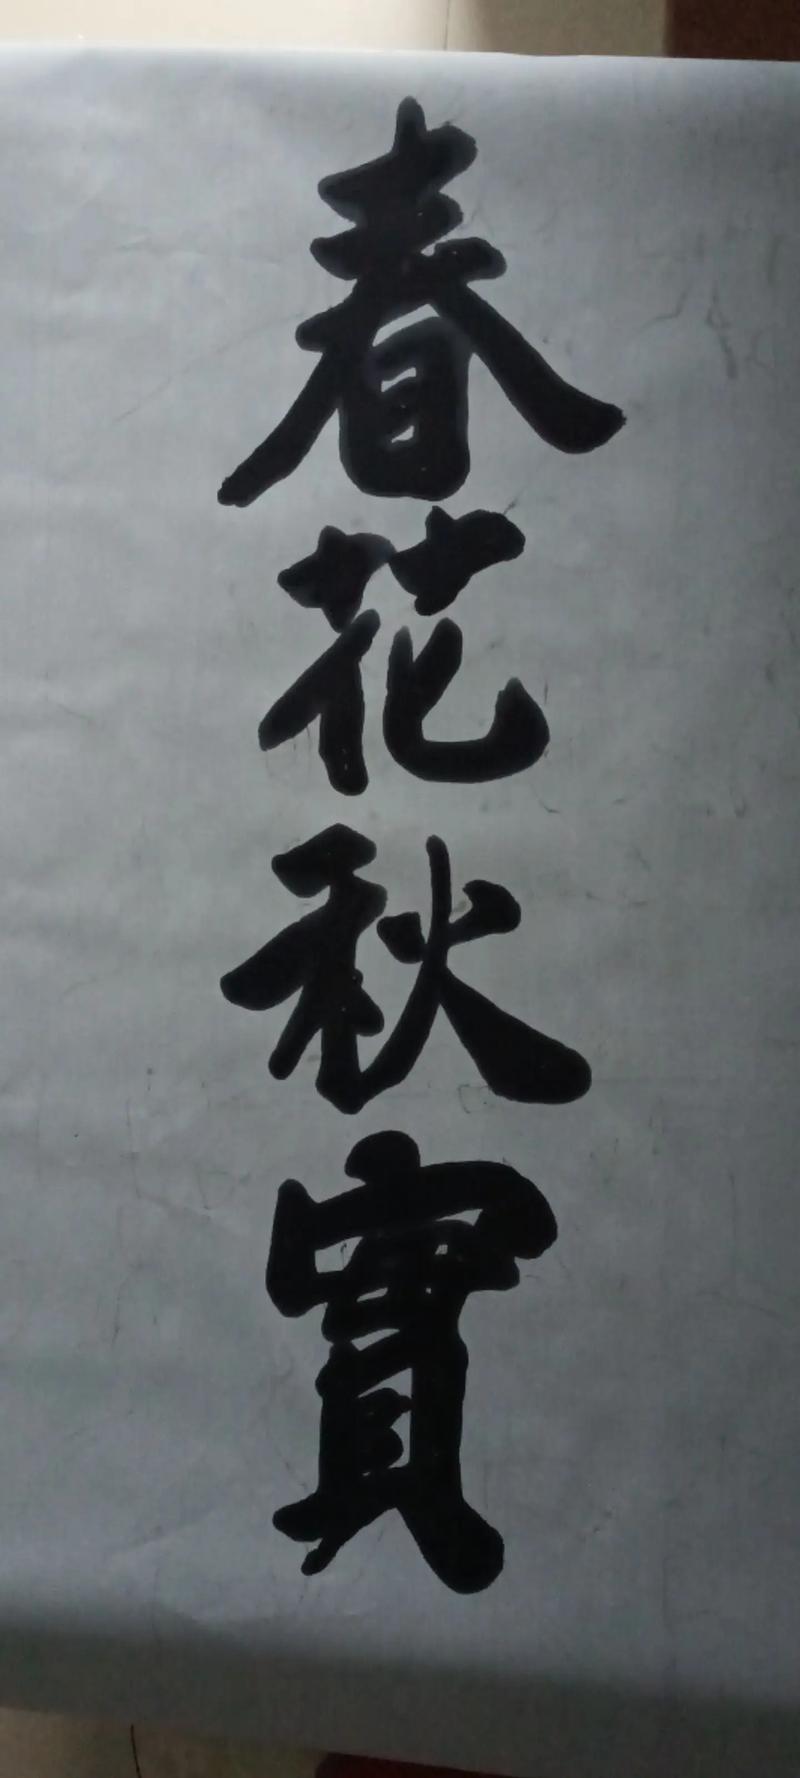 春花秋實